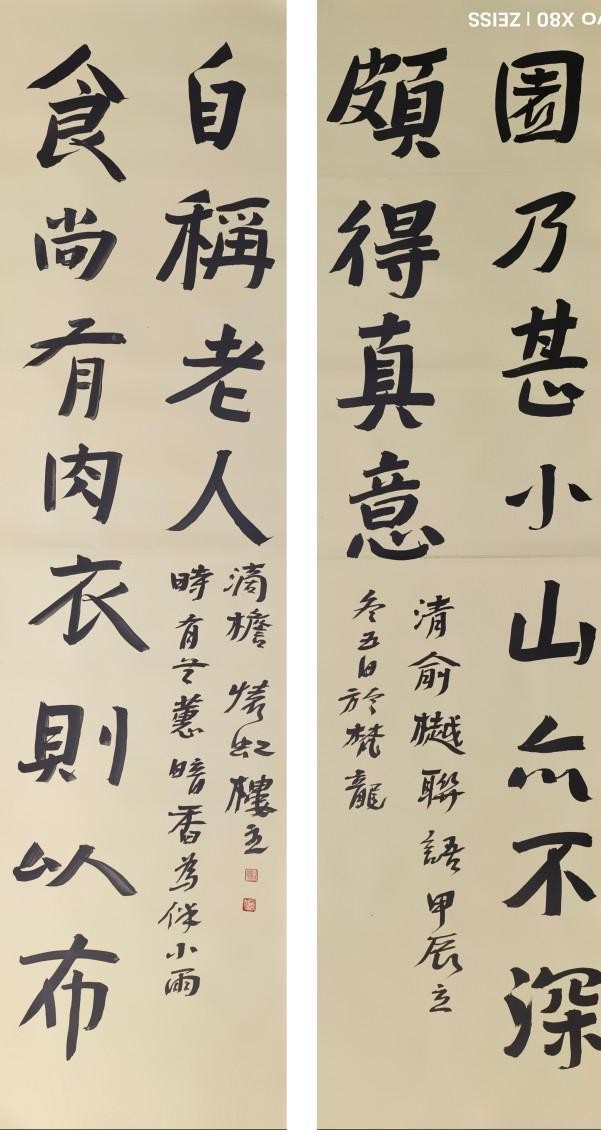 園乃甚小山亦不深
頗得真意
清俞樾聯語甲辰立
冬五日於梵龍
食尚有肉衣則以布
自稱老人
時有蕙暗香為伴小雨
滴檐虹樓立
X80 | ZEISS